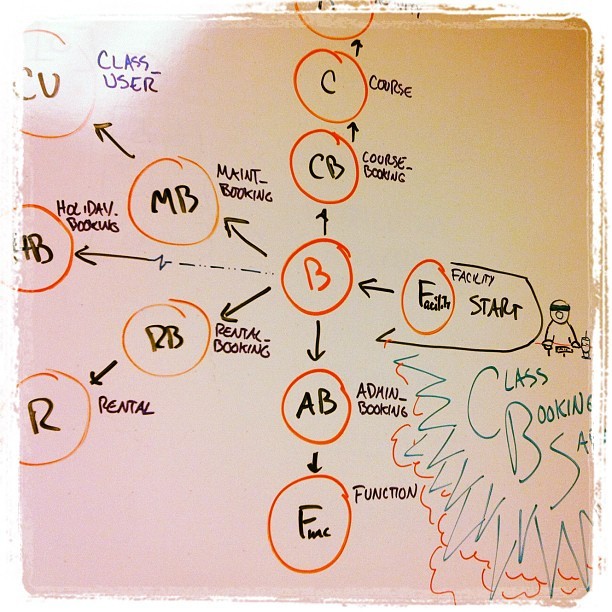 CLASS_
USER
CU
C
COURSE
CB
COURSE_
BOOKING
MB
MAINT_
BOOKING
HOLIDAY_
BOOKING
HB
B
FACILITY
Facility
START
RB
RENTAL_
BOOKING
R
RENTAL
AB
ADMIN_
BOOKING
CLASS
BOOKING
FUNCTION
Func